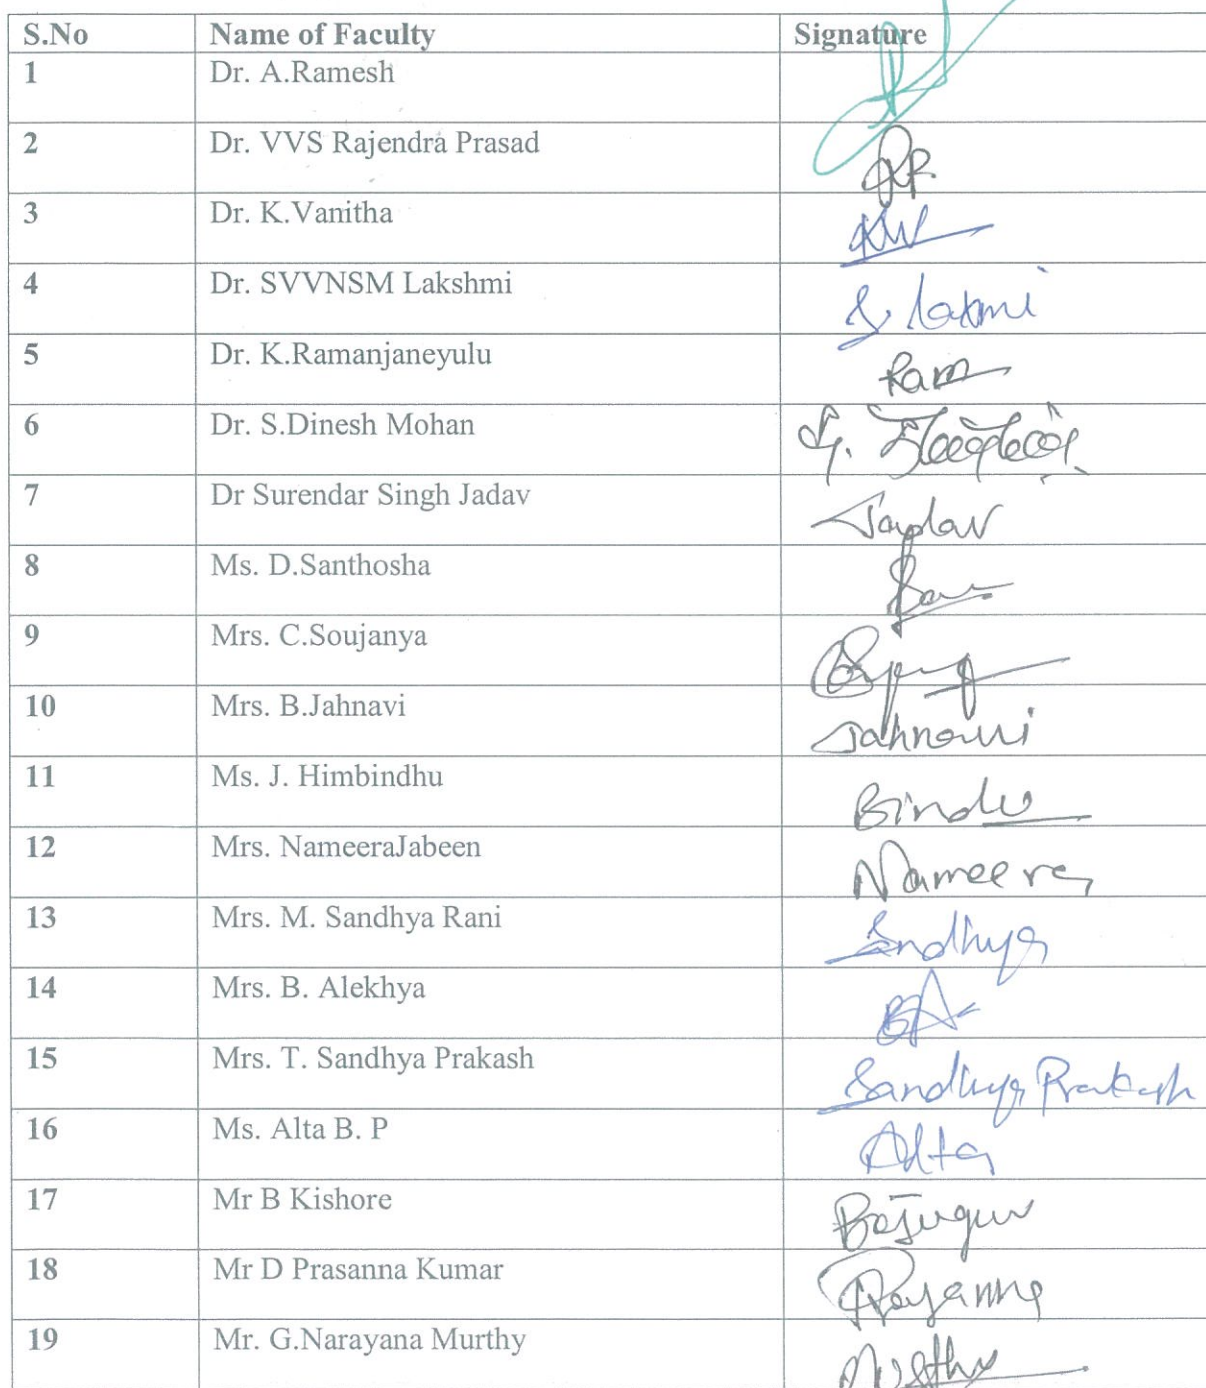 S.No Name of Faculty Signature
1 Dr. A.Ramesh
2 Dr. VVS Rajendra Prasad
3 Dr. K.Vanitha
4 Dr. SVVNSM Lakshmi S. laxmi
5 Dr. K.Ramanjaneyulu Ram
6 Dr. S.Dinesh Mohan
7 Dr Surendar Singh Jadav Jadav
8 Ms. D.Santhosha
9 Mrs. C.Soujanya
10 Mrs. B.Jahnavi Jahnavi
11 Ms. J. Himbindhu Bindu
12 Mrs. NameeraJabeen Nameera
13 Mrs. M. Sandhya Rani Sandhya
14 Mrs. B. Alekhya BA
15 Mrs. T. Sandhya Prakash Sandhya Prakash
16 Ms. Alta B. P Alta
17 Mr B Kishore
18 Mr D Prasanna Kumar
19 Mr. G.Narayana Murthy